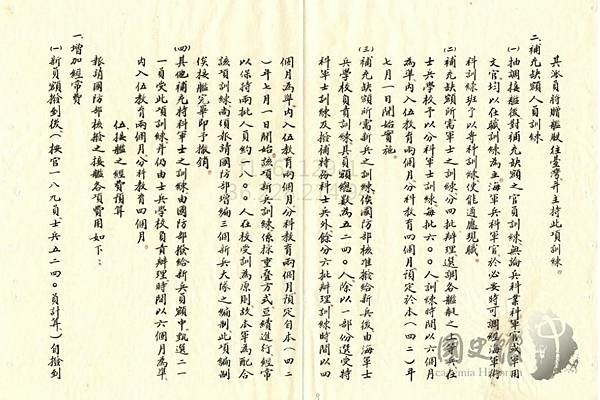 其派員將贈艦駛往臺灣并主持此項訓練。
二、補充缺額人員訓練
(一)抽調接艦後對補充缺額之官員訓練無論兵科業科軍官或軍用
文官均以在職訓練為主海軍兵科軍官於必要時可調經海軍術
科訓練班予以專科訓練使能適應現職。
(二)補充缺額所需軍士之訓練分四批辦理選調各艦艇之士等兵在
士兵學校予以分科軍士訓練每批六〇〇人訓練時間以六個月
為準內入伍教育兩個月分科教育四個月預定於本(四二)年
七月一日開始實施。
(三)補充缺額所需新兵之訓練俟國防部核准撥給新兵後由海軍士
兵學校負責訓練其員額總數為五二四〇人除以一部份選受特
科軍士訓練及撥補特務科士兵外餘分六批辦理訓練時間以四
個月為準內入伍教育兩個月分科教育兩個月預定自本(四二
)年七月一日開始該項新兵訓練係採重疊方式並續進行經常
以保持兩批人員約一八〇〇人在校受訓為原則故本軍為配合
該項訓練尚須報請國防部增編三個新兵大隊之編制此項編制
俟接艦完畢即予撤銷。
(四)其他補充特科軍士之訓練由國防部撥給新兵員額中甄選二一
一員受此項訓練并仍由士兵學校負責辦理訓練時間以六個月為準
內入伍教育兩個月分科教育四個月。
伍、接艦之經費預算
報請國防部核撥之接艦各項費用如下:
一、增加經常費
(一)新員額撥到後(按官一八九員士兵五二四〇員計算)自撥到
國史館
Academia Historica